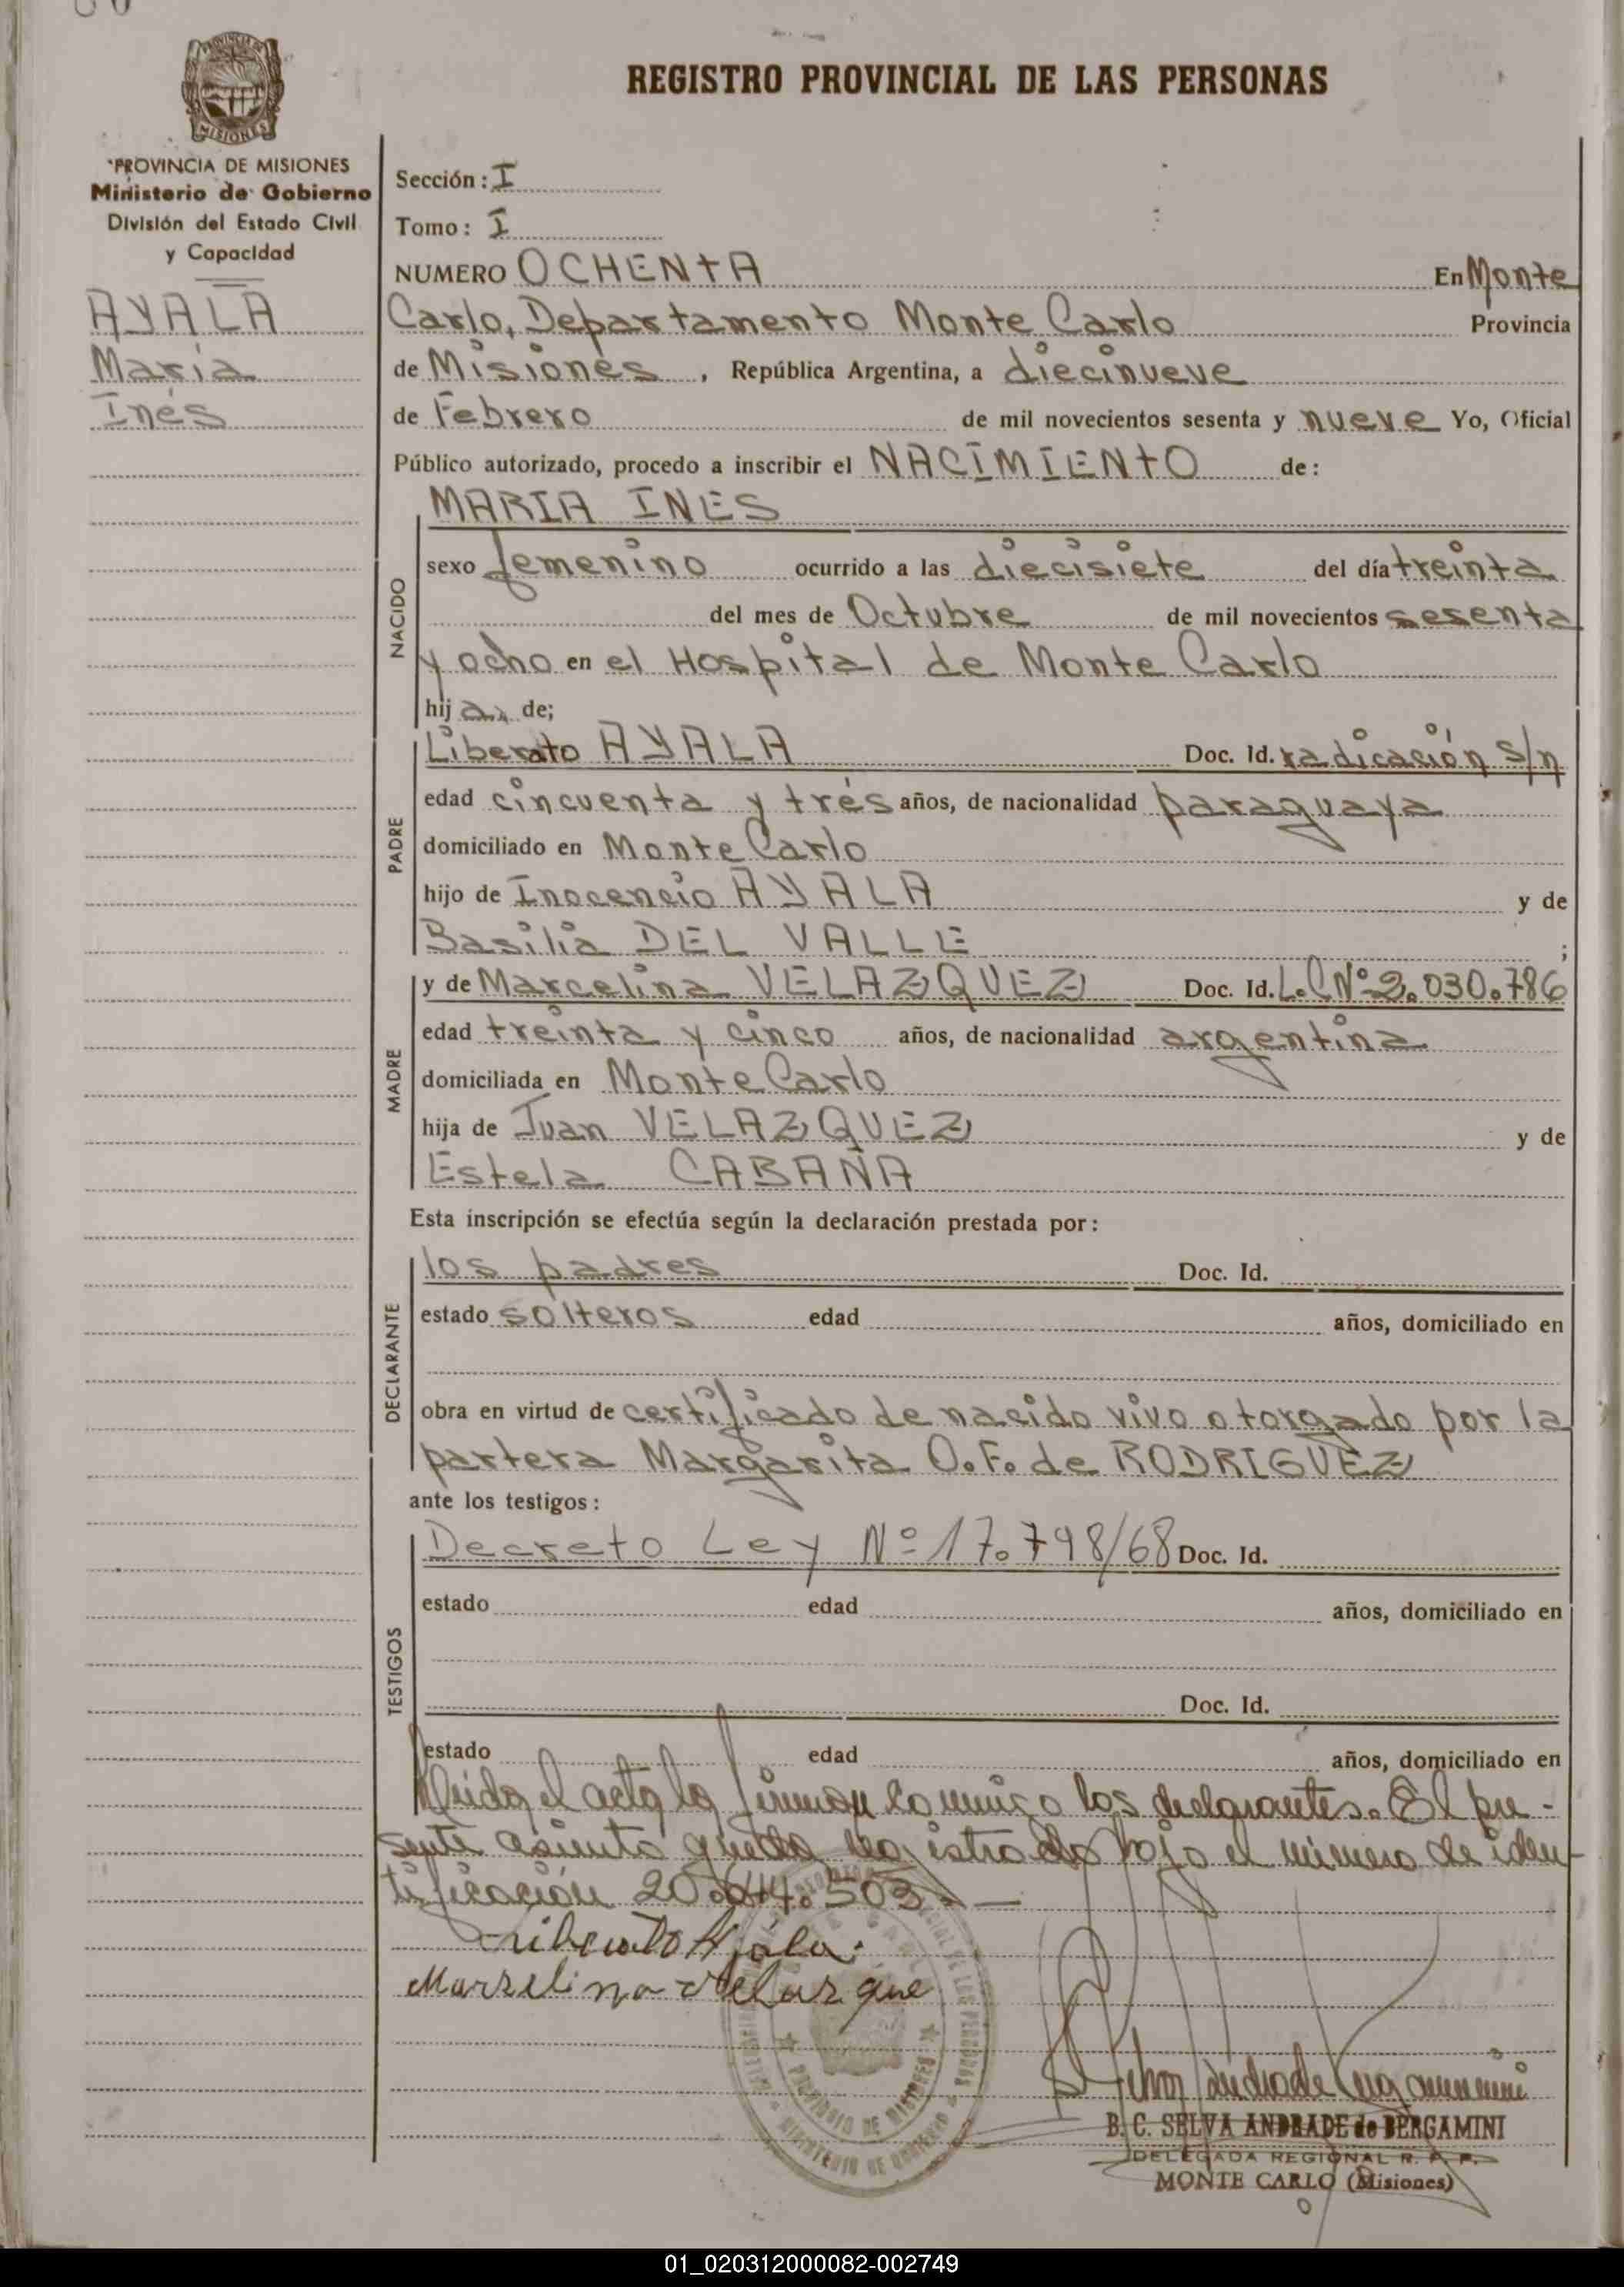 REGISTRO PROVINCIAL DE LAS PERSONAS
PROVINCIA DE MISIONES
Ministerio de Gobierno
División del Estado Civil
y Capacidad
AYALA
María
Inés
Sección: I
Tomo: I
NUMERO OCHENTA En Monte
Carlo, Departamento Monte Carlo Provincia
de Misiones, República Argentina, a diecinueve
de Febrero de mil novecientos sesenta y nueve Yo, Oficial
Público autorizado, procedo a inscribir el NACIMIENTO de:
MARIA INES
NACIDO
sexo femenino ocurrido a las diecisiete del día treinta
del mes de Octubre de mil novecientos sesenta
y ocho en el Hospital de Monte Carlo
hija de;
PADRE
Liberato AYALA Doc. Id. radicación s/n
edad cincuenta y tres años, de nacionalidad paraguaya
domiciliado en Monte Carlo
hijo de Inocencio AYALA y de
Basilia DEL VALLE ;
MADRE
y de Marcelina VELAZQUEZ Doc. Id. L.C Nº 2.030.786
edad treinta y cinco años, de nacionalidad argentina
domiciliada en Monte Carlo
hija de Juan VELAZQUEZ y de
Estela CABAÑA
Esta inscripción se efectúa según la declaración prestada por:
DECLARANTE
los padres Doc. Id.
estado solteros edad años, domiciliado en
obra en virtud de certificado de nacido vivo otorgado por la
partera Margarita O.F. de RODRIGUEZ
ante los testigos:
TESTIGOS
Decreto Ley Nº 17.798/68 Doc. Id.
estado edad años, domiciliado en
Doc. Id.
estado edad años, domiciliado en
Leida el acta la firman conmigo los declarantes. El pre-
sente asiento queda registrado bajo el número de iden-
tificación 20.
Liberato Ajala.
Marzelina Velazque
B. C. SELVA ANDRADE de BERGAMINI
DELEGADA REGIONAL R. P. P.
MONTE CARLO (Misiones)
01_020312000082-002749